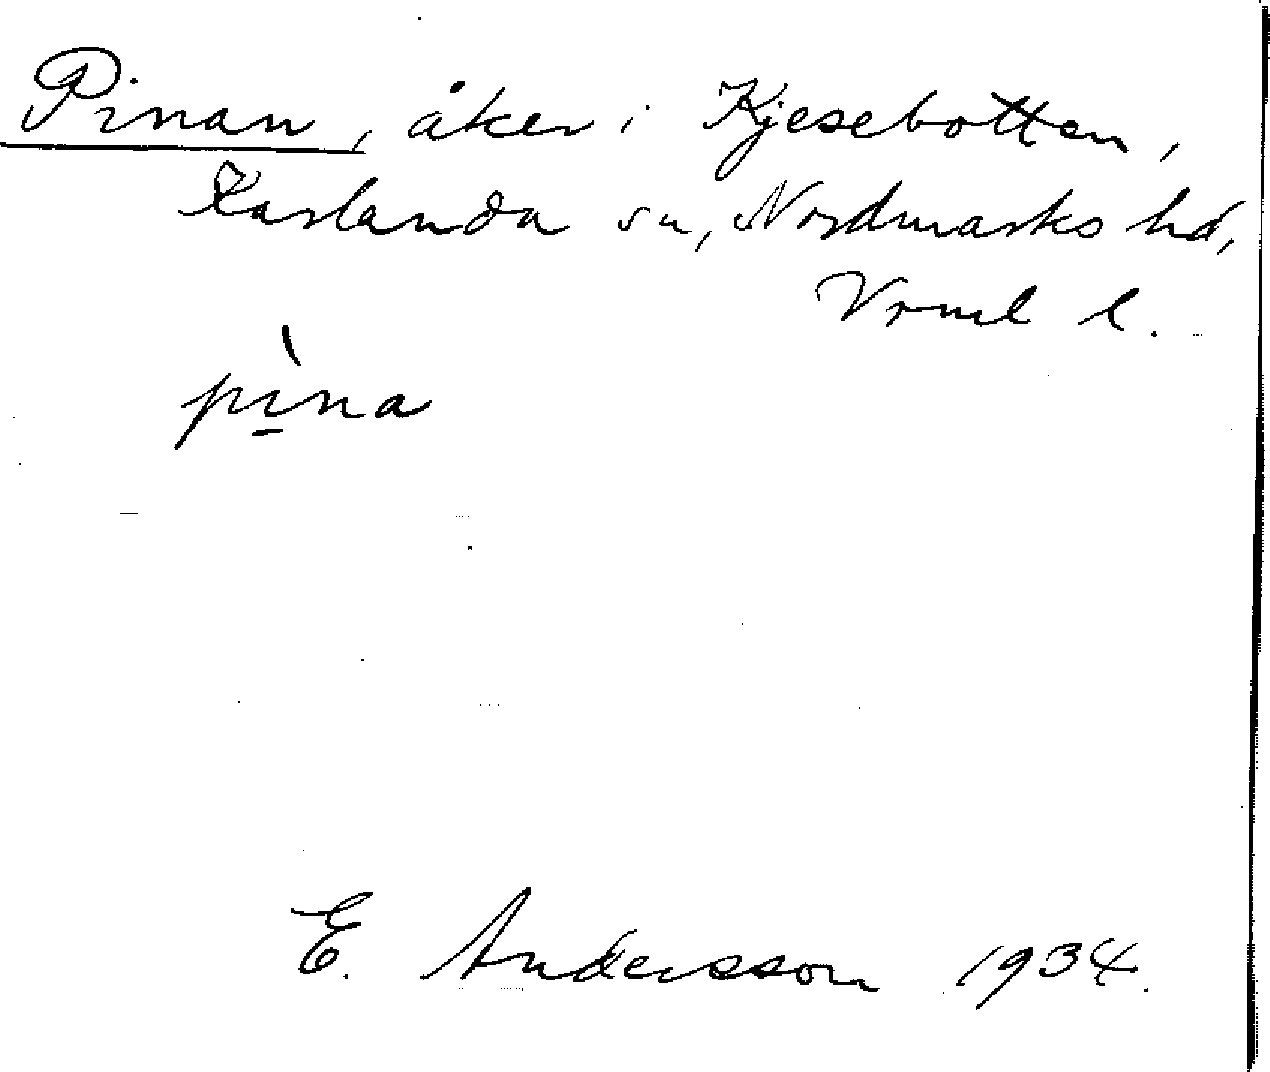 Pinan, åker i Kjesebotten,
Karlanda sn, Nordmarks hd,
Vrml l.
pì̠na
E. Andersson 1934.